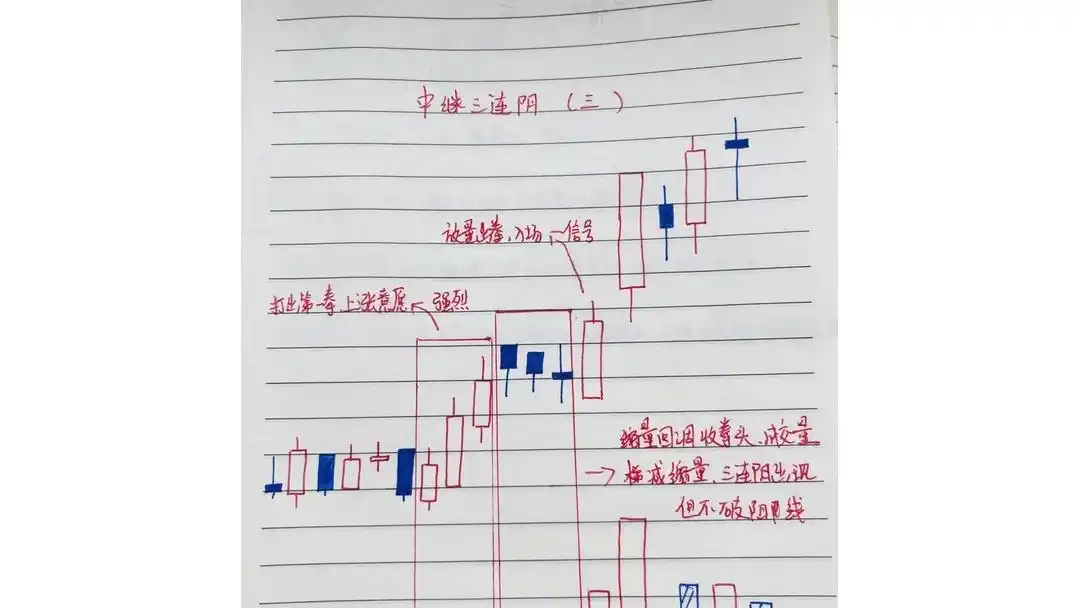 中继三连阴（三）
放量出拳,入场信号
打出第一拳,上涨意愿强烈
缩量回调收拳头,成交量
梯减缩量,三连阴出现
但不破阳线